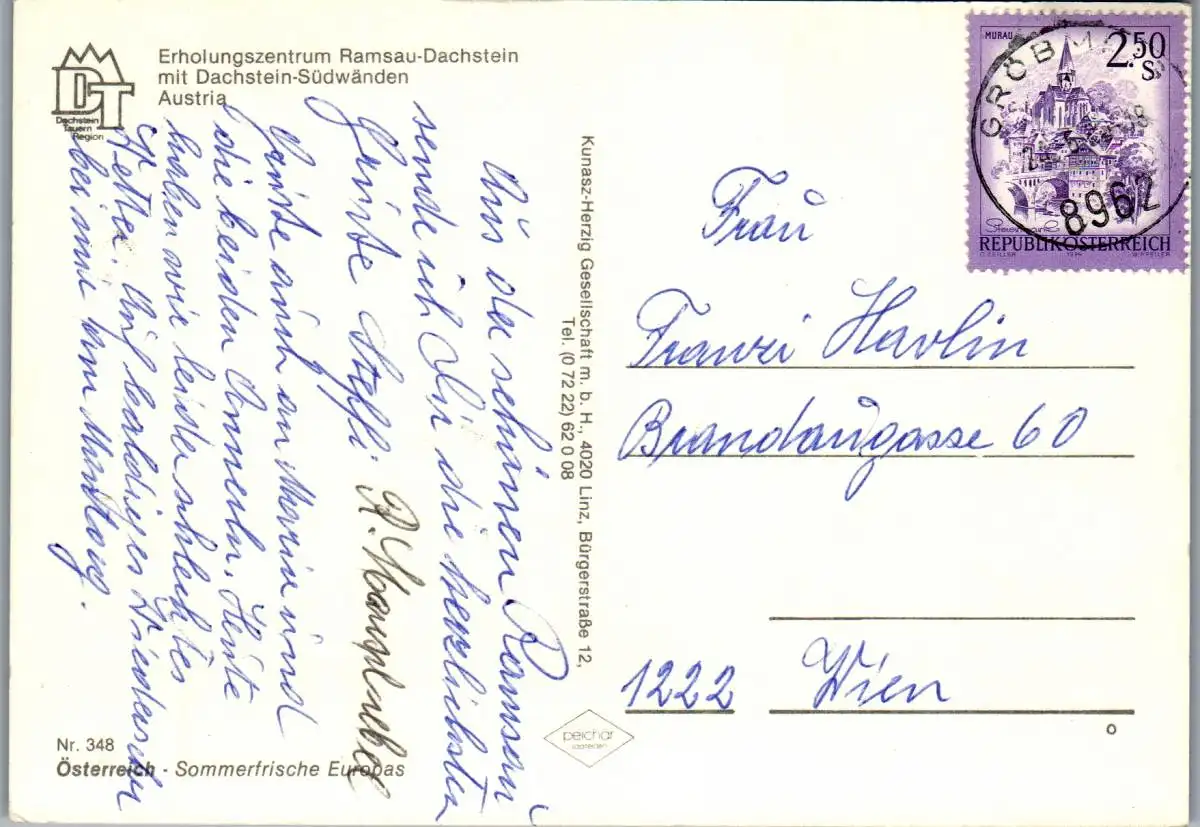 Erholungszentrum Ramsau-Dachstein
mit Dachstein-Südwänden
Austria
DT
Dachstein
Tauern
Region
Aus der schönen Ramsau
sende ich Dir die herzlichsten
Grüße Steffi R.
Grüße auch an Maria und
die beiden Enneln. Heute
haben wir leider schlechtes
Wetter. Auf baldiges Wiedersehn
bei mir am Montag.
Kunasz-Herzig Gesellschaft m. b. H., 4020 Linz, Bürgerstraße 12,
Tel. (0 72 22) 62 0 08
MURAU
2.50
S
GRÖBMING
8962
Steiermark
REPUBLIK ÖSTERREICH
Frau
Franzi Havlin
Brandaugasse 60
1222 Wien
Nr. 348
Österreich - Sommerfrische Europas
peichar
o